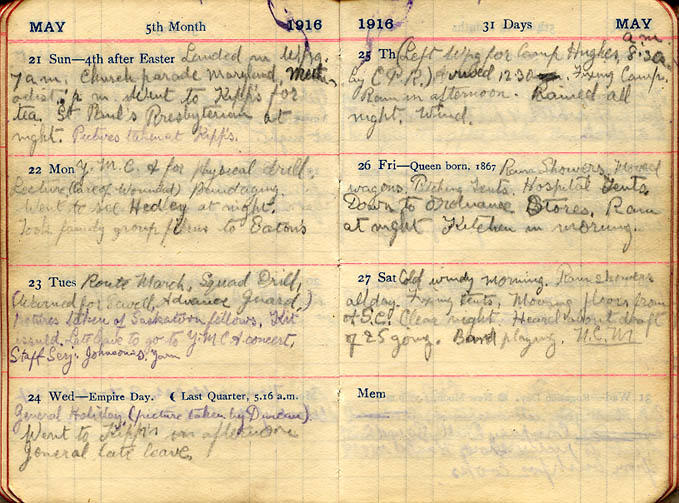 MAY 5th Month 1916
21 Sun—4th after Easter Landed in Wpg.
7 a.m. Church parade Maryland Meth-
odist. p.m. Went to Kipp's for
tea. St Paul's Presbyterian at
night. Pictures taken at Kipp's.
22 Mon Y.M.C.A for physical drill.
Lecture (Care of Wounded) Bandaging.
Went to see Hedley at night.
Took family group films to Eaton's
23 Tues Route March, Squad Drill,
(Returned for Advance Guard,)
Pictures taken of Saskatoon fellows. Kit
issued. Late leave to go to Y.M.C.A concert,
Staff Serj. Yarn
24 Wed—Empire Day. ☾ Last Quarter, 5.16 a.m.
General Holiday (picture taken by Duncan).
Went to Kipp's in afternoon
General late leave.
1916 31 Days MAY
25 Th (Left Wpg for Camp Hughes 8.30 a.m.
by C.P.R.) Arrived 12.30. Fixing Camp.
Rain in afternoon. Rained all
night. Wind.
26 Fri—Queen born, 1867 Rain Showers. Moved
wagons. Pitching Tents. Hospital Tents.
Down to Ordnance Stores. Rain
at night Kitchen in morning.
27 Sat Cold windy morning. Rain showers
all day. Fixing tents, Moving floors from
A.S.C. Clear night. Heard about draft
of 25 going. Band playing.
Mem